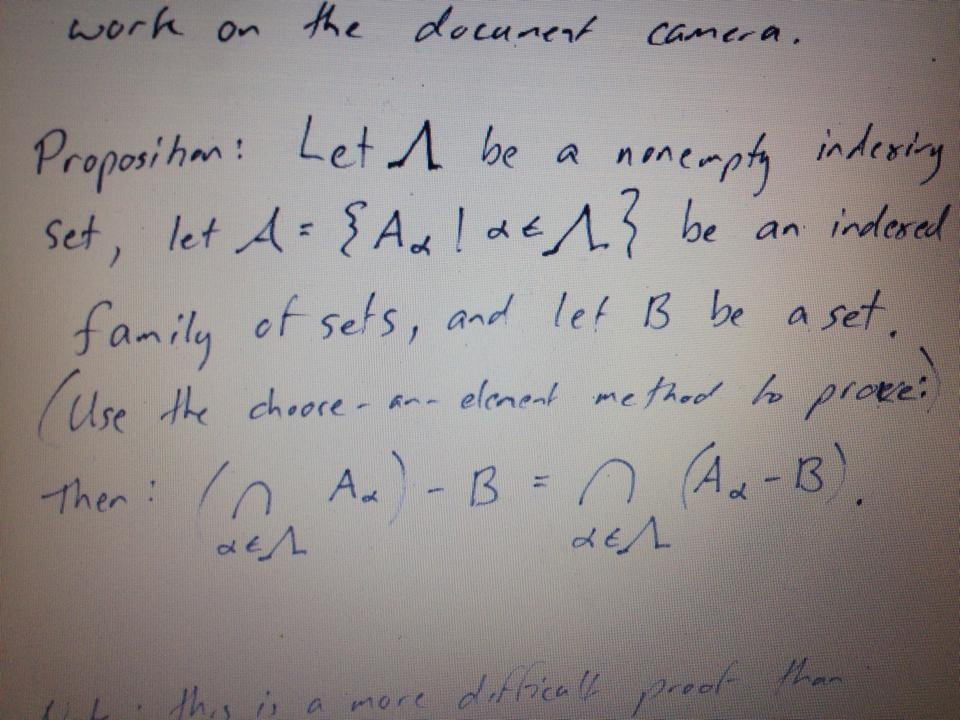 work on the document camera.
Proposition: Let Λ be a nonempty indexing
set, let A = {Aα | α ∈ Λ} be an indexed
family of sets, and let B be a set.
(Use the choose-an-element method to prove:)
Then: (∩ Aα) - B = ∩ (Aα - B).
α∈Λ α∈Λ
this is a more difficult proof than